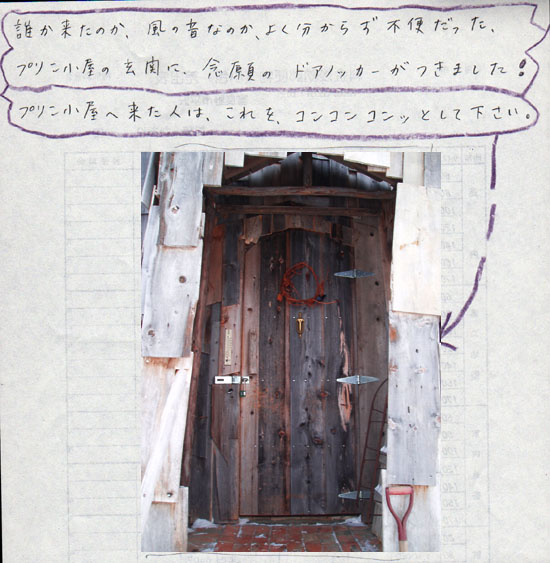 誰か来たのか、風の音なのか、よく分からず不便だった、
プリン小屋の玄関に、念願のドアノッカーがつきました！
プリン小屋へ来た人は、これを、コンコンコンッとして下さい。